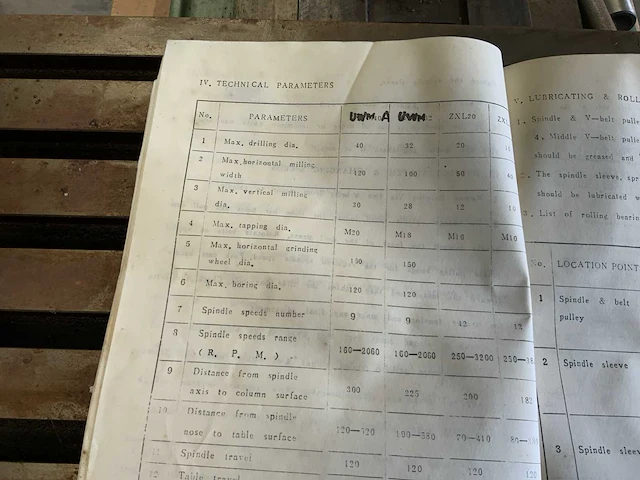 IV. TECHNICAL PARAMETERS
No. PARAMETERS UWM A UWM ZXL20
1 Max. drilling dia. 40 32 20
2 Max. horizontal milling
width 120 100 50
3 Max. vertical milling
dia. 30 28 12
4 Max. tapping dia. M20 M18 M16 M10
5 Max. horizontal grinding
wheel dia. 150
6 Max. boring dia. 120 120
7 Spindle speeds number 9 9 12 12
8 Spindle speeds range
( R. P. M. ) 160—2060 160—2060 250—3200
9 Distance from spindle
axis to column surface 300 225 200
10 Distance from spindle
nose to table surface 190—580 70—410
11 Spindle travel 120 120 120
12 Table travel
V. LUBRICATING &
1. Spindle & V—belt
4. Middle V—belt
should be greased and
2. The spindle sleeve,
should be lubricated
3. List of rolling
No. LOCATION POINT
1 Spindle & belt
pulley
2 Spindle sleeve
3 Spindle